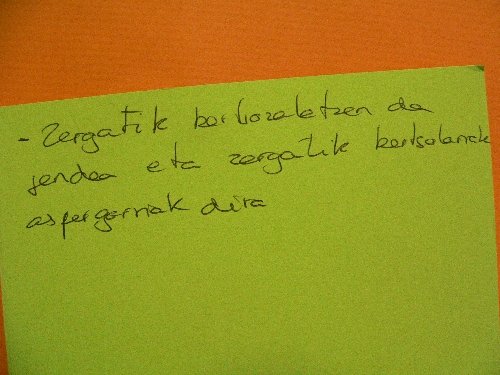 - Zergatik bertsozaletzen da
jendea eta zergatik bertsolariak
aspergarriak dira